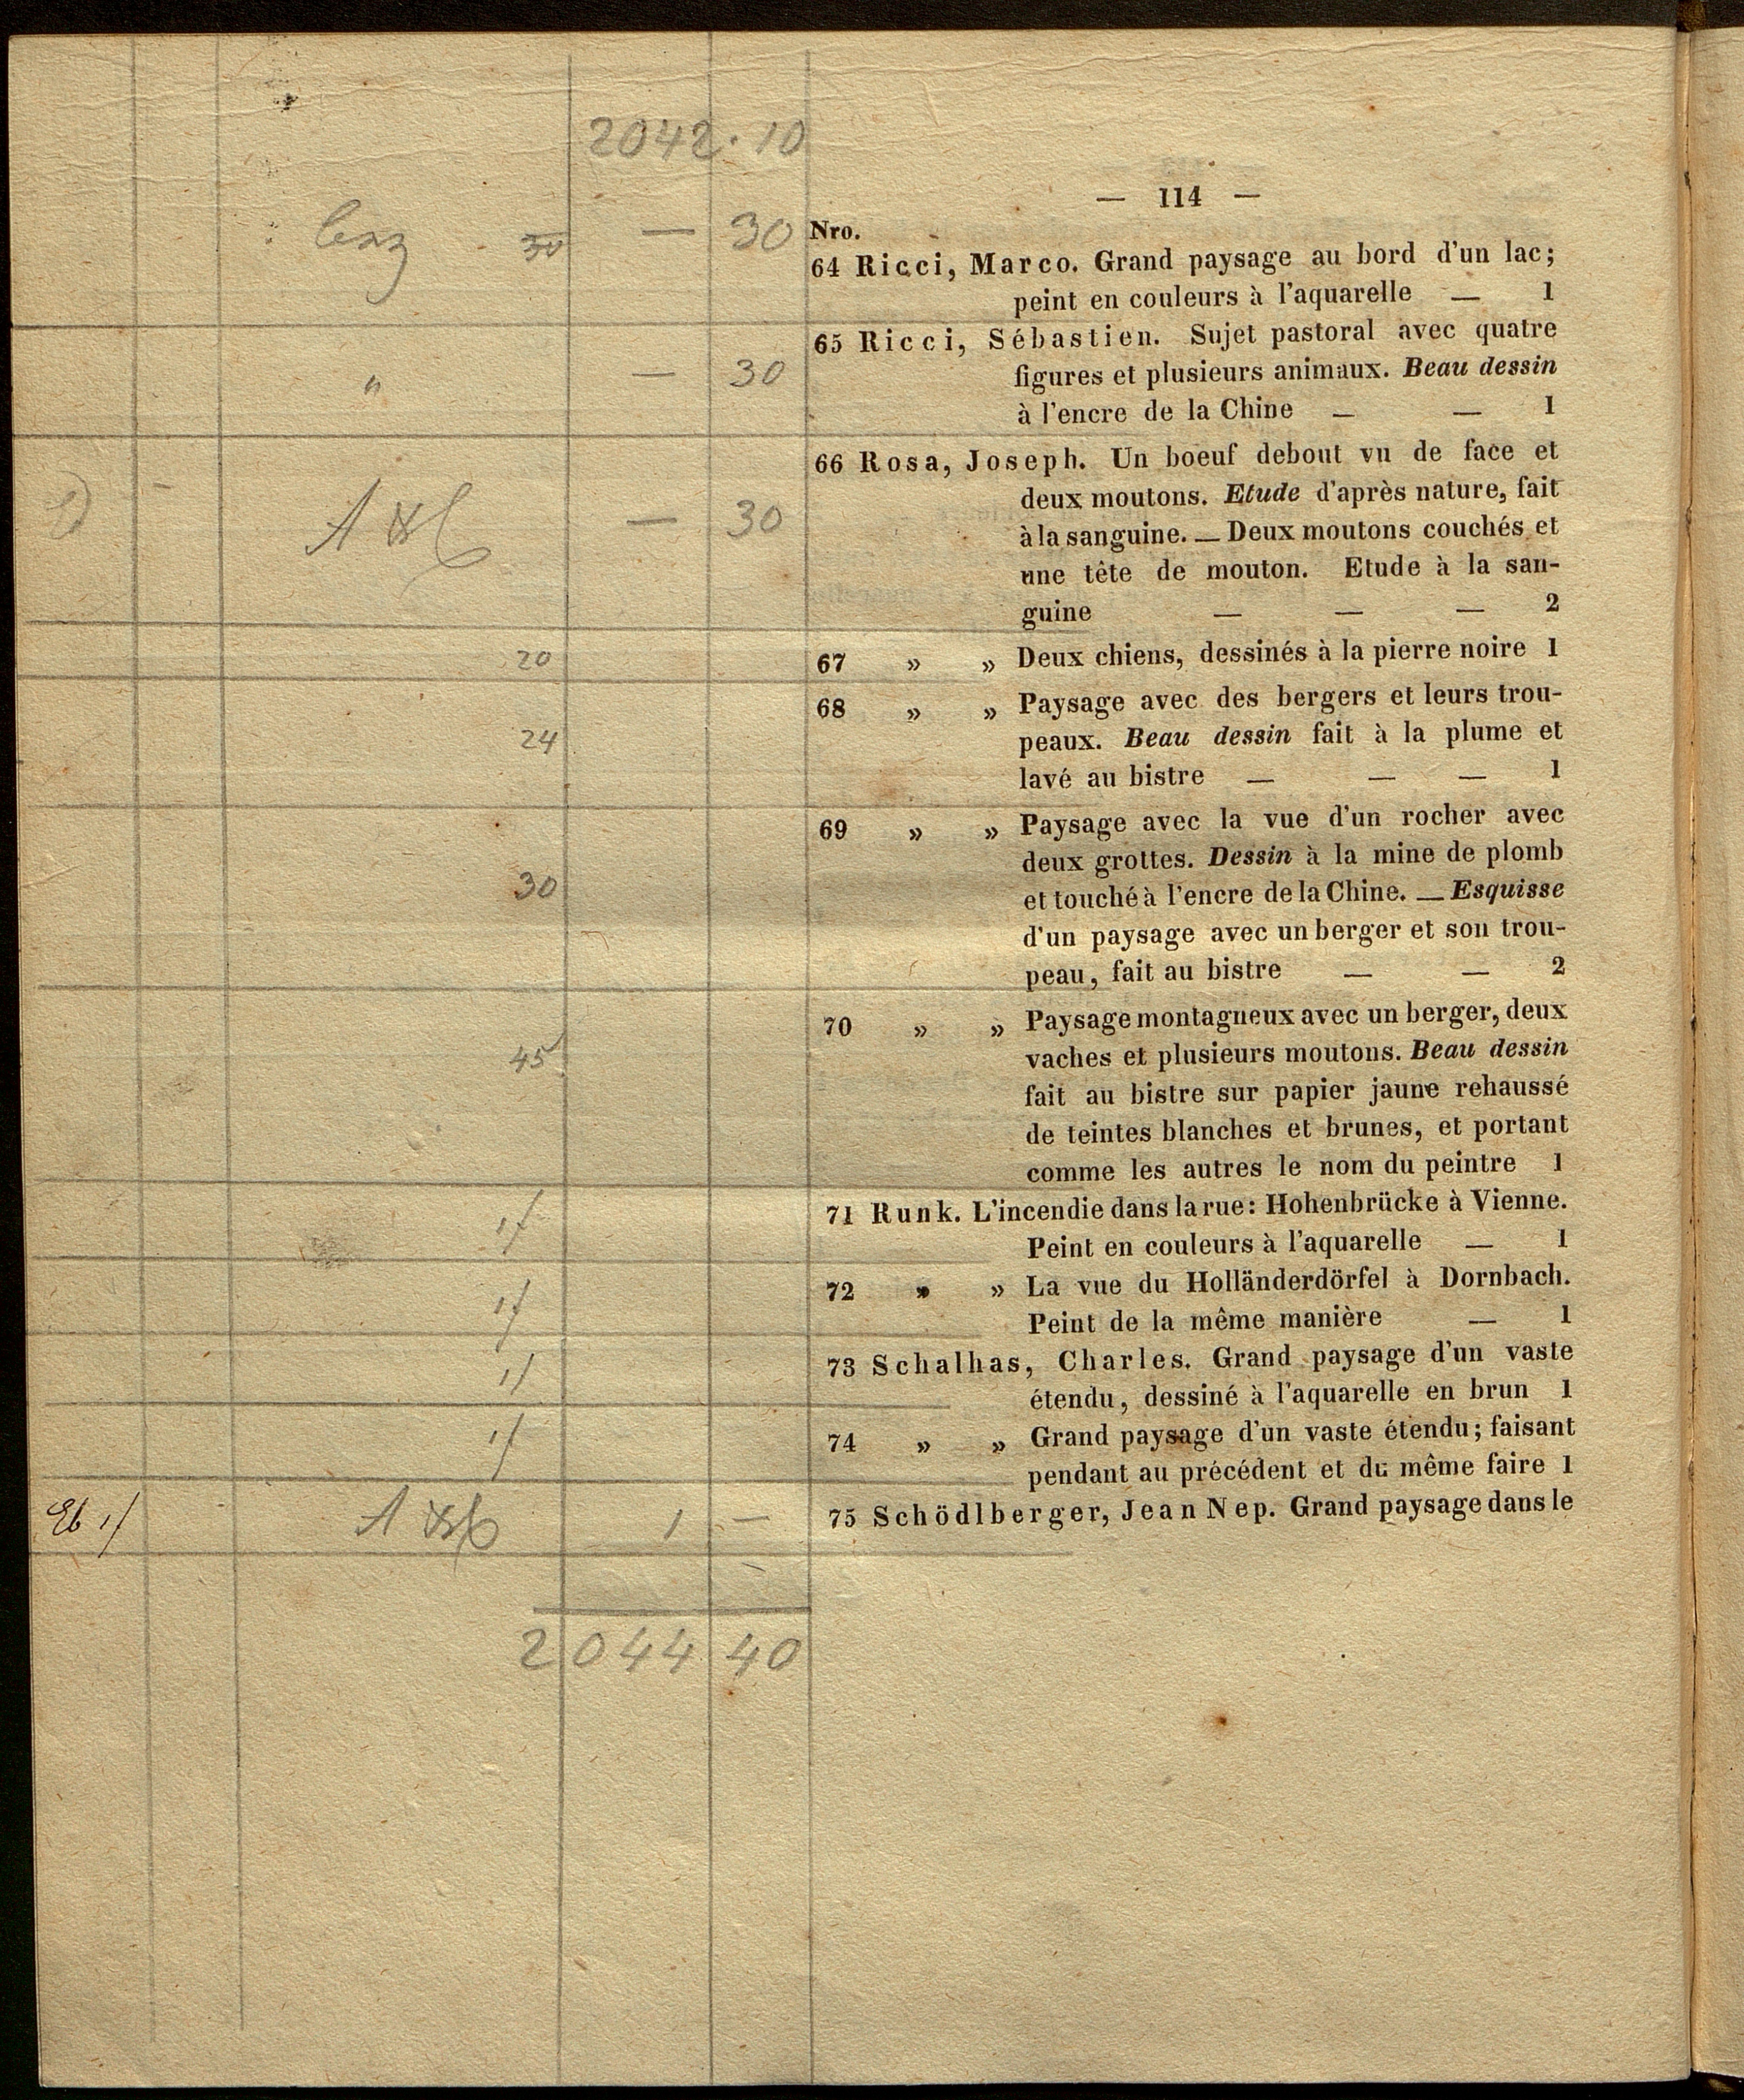 2042 · 10
— 114 —
— 30
30
Nro.
64 Ricci, Marco. Grand paysage au bord d'un lac;
peint en couleurs à l'aquarelle — 1
65 Ricci, Sébastien. Sujet pastoral avec quatre
" — 30
figures et plusieurs animaux. Beau dessin
à l'encre de la Chine — — 1
66 Rosa, Joseph. Un boeuf debout vu de face et
deux moutons. Etude d'après nature, fait
— 30
à la sanguine. — Deux moutons couchés et
une tête de mouton. Etude à la san-
guine — — — 2
20
67 » » Deux chiens, dessinés à la pierre noire 1
68 » » Paysage avec des bergers et leurs trou-
24
peaux. Beau dessin fait à la plume et
lavé au bistre — — — 1
69 » » Paysage avec la vue d'un rocher avec
deux grottes. Dessin à la mine de plomb
30
et touché à l'encre de la Chine. — Esquisse
d'un paysage avec un berger et son trou-
peau, fait au bistre — — 2
70 » » Paysage montagneux avec un berger, deux
45
vaches et plusieurs moutons. Beau dessin
fait au bistre sur papier jaune rehaussé
de teintes blanches et brunes, et portant
comme les autres le nom du peintre 1
71 Runk. L'incendie dans la rue: Hohenbrücke à Vienne.
Peint en couleurs à l'aquarelle — 1
72 » » La vue du Holländerdörfel à Dornbach.
Peint de la même manière — 1
73 Schalhas, Charles. Grand paysage d'un vaste
étendu, dessiné à l'aquarelle en brun 1
74 » » Grand paysage d'un vaste étendu; faisant
pendant au précédent et du même faire 1
1 —
75 Schödlberger, Jean Nep. Grand paysage dans le
2044 40